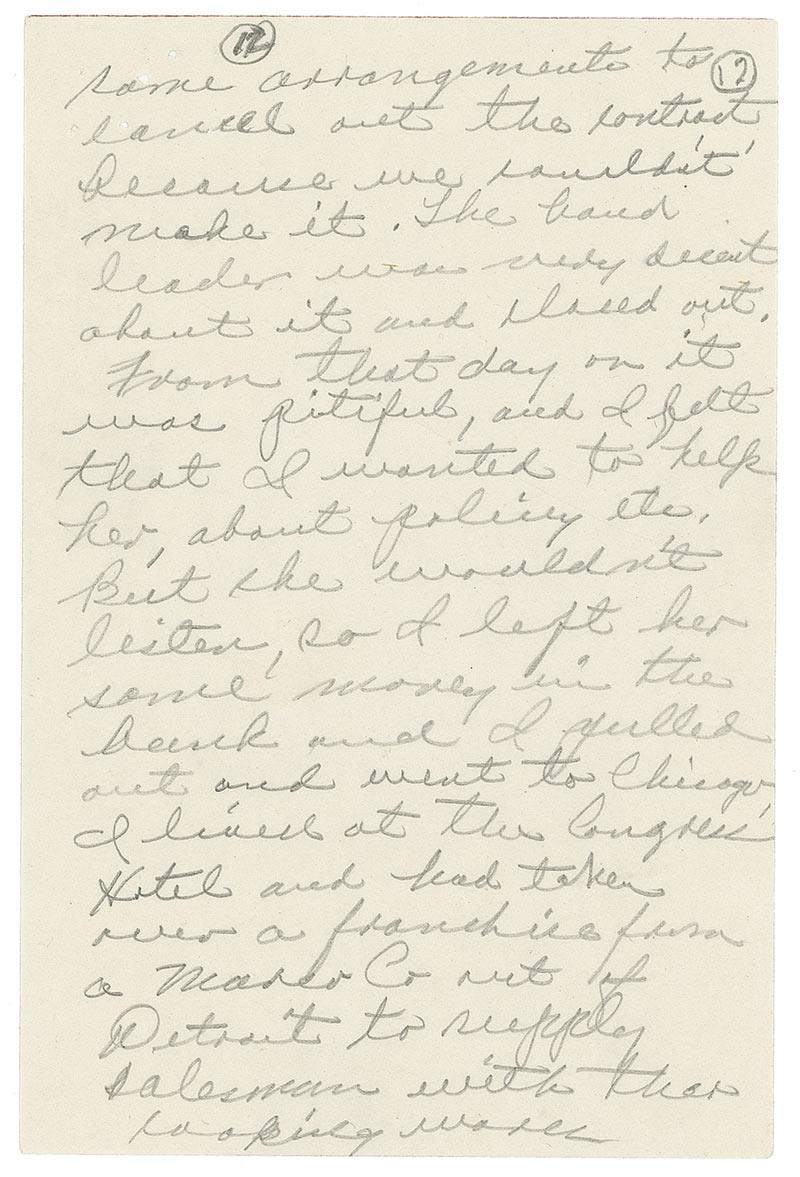 12
12
some arrangements to
cancel out the contract,
because we couldn't
make it. The band
leader was very decent
about it and closed out.
From that day on it
was pitiful, and I felt
that I wanted to help
her, about policy etc.
But she wouldn't
listen, so I left her
some money in the
bank and I pulled
out and went to Chicago,
I lived at the Congress
Hotel and had taken
over a franchise from
a Marco Co out of
Detroit to supply
salesman with ther
cooking wares